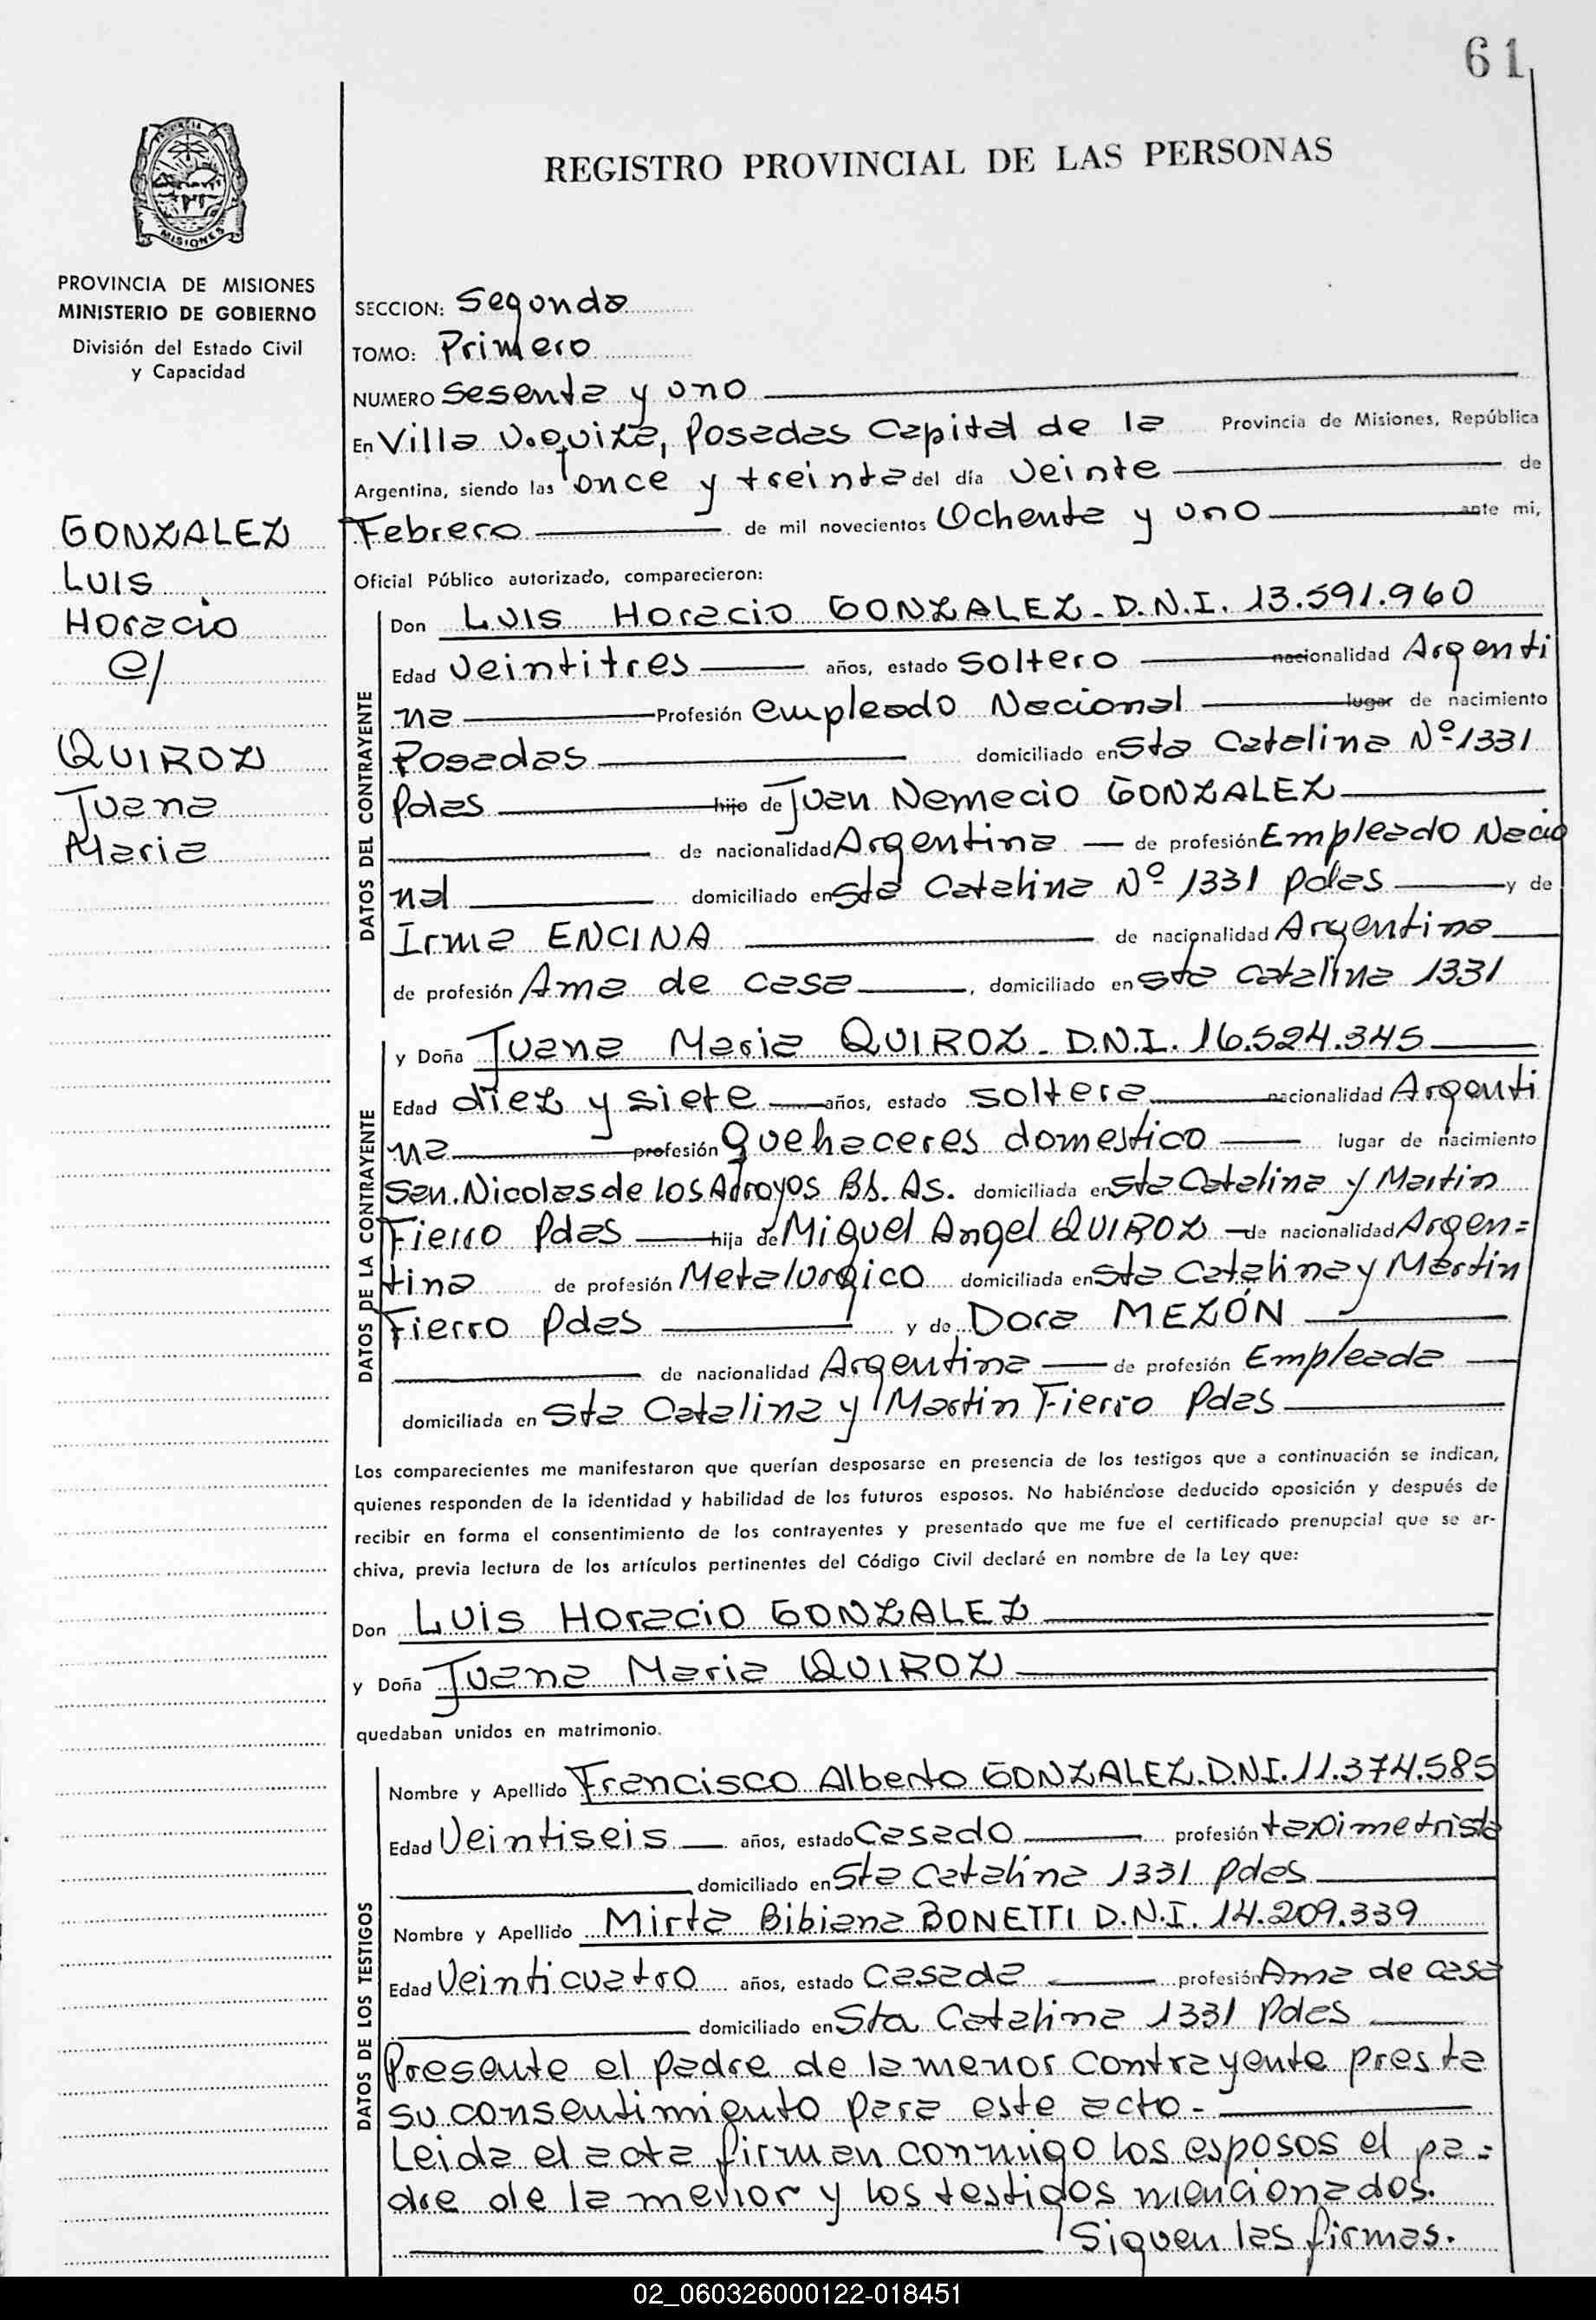 61
REGISTRO PROVINCIAL DE LAS PERSONAS
PROVINCIA DE MISIONES
MISIONES
PROVINCIA DE MISIONES
MINISTERIO DE GOBIERNO
División del Estado Civil
y Capacidad
GONZALEZ
LUIS
Horacio
c/
QUIROZ
Juana
Maria
SECCION: Segunda
TOMO: Primero
NUMERO Sesenta y uno
En Villa Urquiza, Posadas Capital de la Provincia de Misiones, República
Argentina, siendo las once y treinta del día veinte de
Febrero de mil novecientos Ochenta y uno ante mi,
Oficial Público autorizado, comparecieron:
DATOS DEL CONTRAYENTE
Don LUIS Horacio GONZALEZ - D.N.I. 13.591.960
Edad veintitres años, estado soltero nacionalidad Argenti
na Profesión empleado Nacional lugar de nacimiento
Posadas domiciliado en Sta Catalina Nº 1331
Pdas hijo de Juan Nemecio GONZALEZ
de nacionalidad Argentina de profesión Empleado Nacio
nal domiciliado en Sta Catalina Nº 1331 Pdas y de
Irma ENCINA de nacionalidad Argentina
de profesión Ama de casa, domiciliado en Sta Catalina 1331
DATOS DE LA CONTRAYENTE
y Doña Juana Maria QUIROZ - D.N.I. 16.524.345
Edad diez y siete años, estado soltera nacionalidad Argenti
na profesión quehaceres domestico lugar de nacimiento
San Nicolas de los Arroyos Bs. As. domiciliada en Sta Catalina y Martin
Fierro Pdas hija de Miguel Angel QUIROZ de nacionalidad Argen=
tina de profesión Metalurgico domiciliada en Sta Catalina y Martin
Fierro Pdas y de Dora MEZÓN
de nacionalidad Argentina de profesión Empleada
domiciliada en Sta Catalina y Martin Fierro Pdas
Los comparecientes me manifestaron que querían desposarse en presencia de los testigos que a continuación se indican,
quienes responden de la identidad y habilidad de los futuros esposos. No habiéndose deducido oposición y después de
recibir en forma el consentimiento de los contrayentes y presentado que me fue el certificado prenupcial que se ar-
chiva, previa lectura de los artículos pertinentes del Código Civil declaré en nombre de la Ley que:
Don LUIS Horacio GONZALEZ
y Doña Juana Maria QUIROZ
quedaban unidos en matrimonio.
DATOS DE LOS TESTIGOS
Nombre y Apellido Francisco Alberto GONZALEZ. D.N.I. 11.374.585
Edad Veintiseis años, estado Casado profesión taximetrista
domiciliado en Sta Catalina 1331 Pdas
Nombre y Apellido Mirta Bibiana BONETTI D.N.I. 14.209.339
Edad Veinticuatro años, estado Casada profesión Ama de casa
domiciliado en Sta Catalina 1331 Pdas
Presente el padre de la menor contrayente presta
su consentimiento para este acto -
Leida el acta firman conmigo los esposos el pa=
dre de la menor y los testigos mencionados.
Siguen las firmas.
02_060326000122-018451